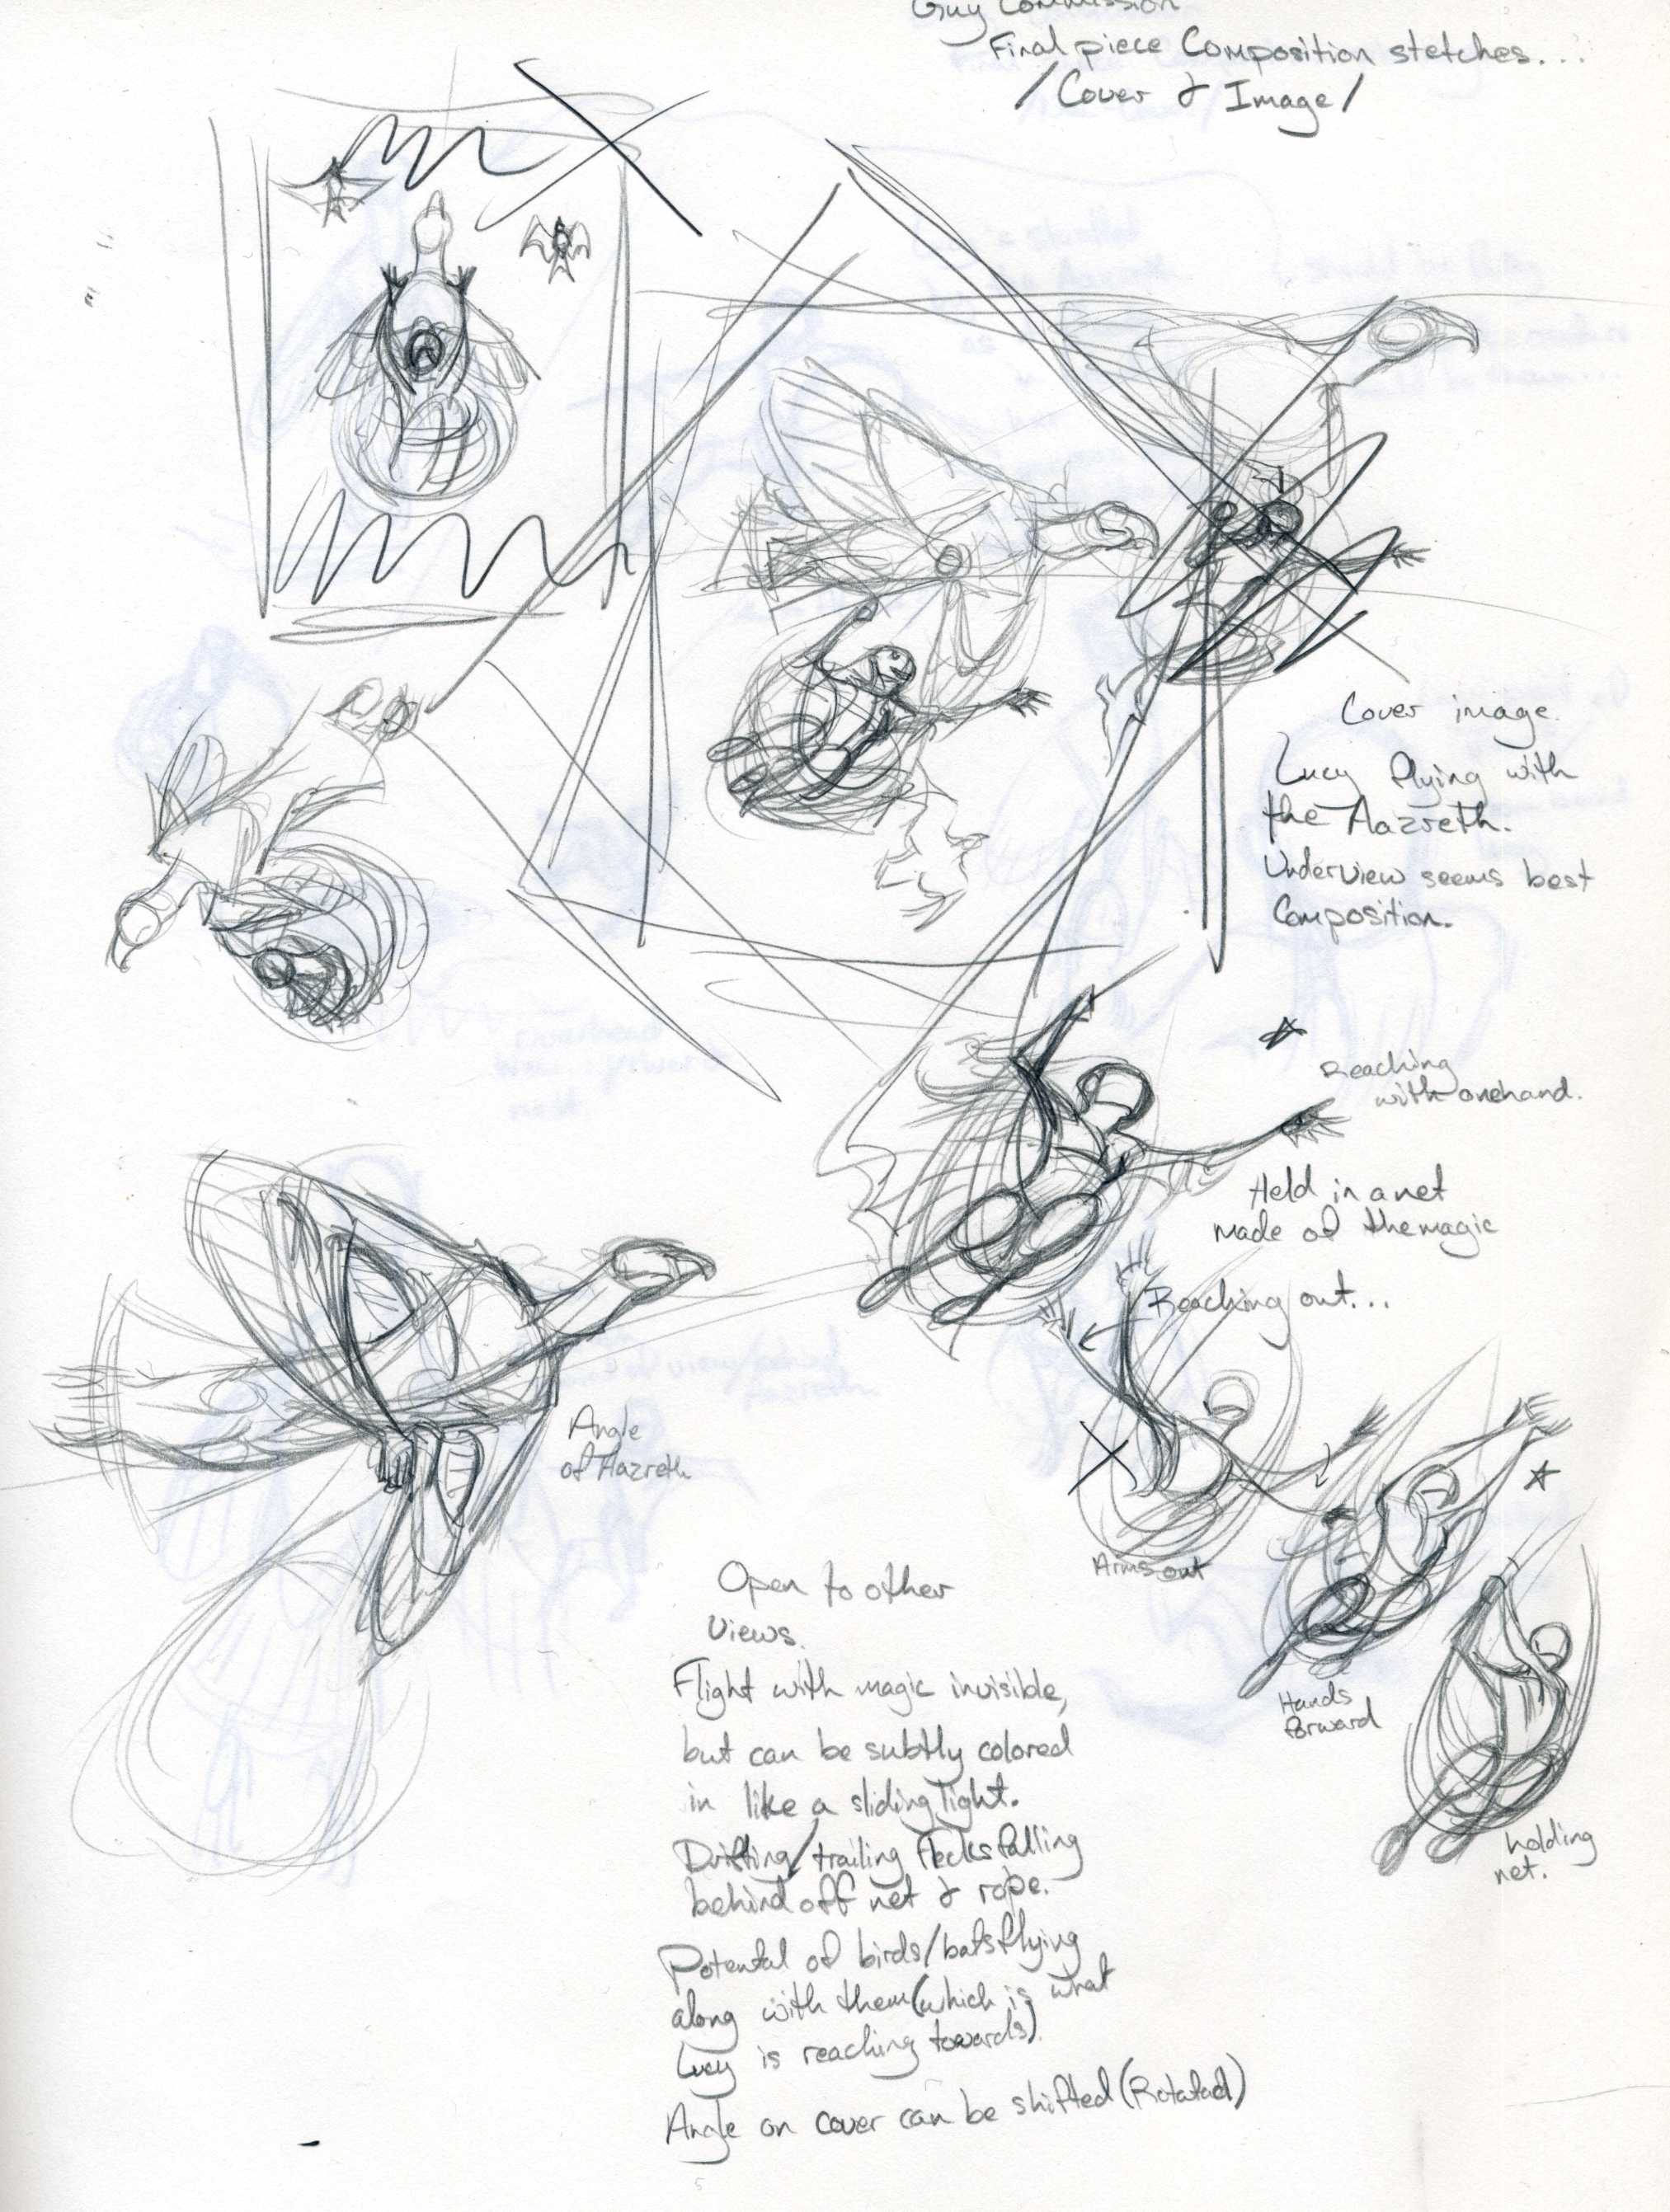 Guy Commission
Final piece Composition stetches...
/Cover & Image/
Cover image.
Lucy flying with
the Hazreth.
Underview seems best
Composition.
Reaching
with onehand.
Held in a net
made of the magic
Reaching out...
Angle
of Hazreth
Arms out
Hands
forward
holding
net.
Open to other
views.
Flight with magic invisible,
but can be subtly colored
in like a sliding light.
Drifting/trailing flecks falling
behind off net & rope.
Potental of birds/bats flying
along with them (which is what
Lucy is reaching towards).
Angle on cover can be shifted (Rotated)